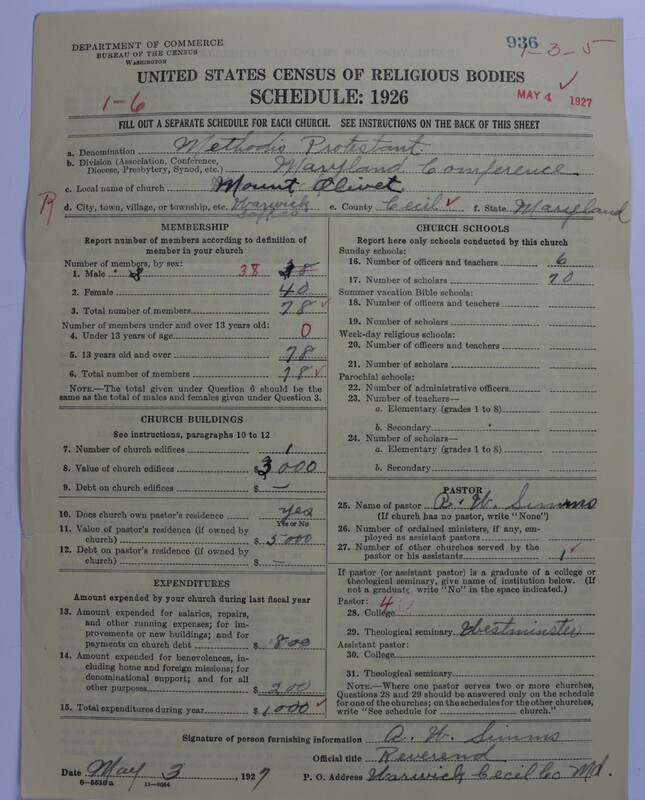 DEPARTMENT OF COMMERCE
BUREAU OF THE CENSUS
WASHINGTON
936
1-3-5
UNITED STATES CENSUS OF RELIGIOUS BODIES
SCHEDULE: 1926
1-6
MAY 4 1927
FILL OUT A SEPARATE SCHEDULE FOR EACH CHURCH. SEE INSTRUCTIONS ON THE BACK OF THIS SHEET
a. Denomination Methodis Protestant.
b. Division (Association, Conference, Diocese, Presbytery, Synod, etc.) Maryland Conference
c. Local name of church Mount Olivet
R
d. City, town, village, or township, etc. Warwick e. County Cecil ✓ f. State Maryland
MEMBERSHIP
Report number of members according to definition of
member in your church
Number of members, by sex:
1. Male 38 38
2. Female 40
3. Total number of members 78 ✓
Number of members under and over 13 years old:
4. Under 13 years of age 0
5. 13 years old and over 78
6. Total number of members 78 ✓
NOTE.—The total given under Question 6 should be the
same as the total of males and females given under Question 3.
CHURCH BUILDINGS
See instructions, paragraphs 10 to 12
7. Number of church edifices 1
8. Value of church edifices $ 3000
9. Debt on church edifices $ —
10. Does church own pastor's residence? yes
Yes or No
11. Value of pastor's residence (if owned by
church) $ 5000
12. Debt on pastor's residence (if owned by
church) $ —
EXPENDITURES
Amount expended by your church during last fiscal year
13. Amount expended for salaries, repairs,
and other running expenses; for im-
provements or new buildings; and for
payments on church debt $ 800
14. Amount expended for benevolences, in-
cluding home and foreign missions; for
denominational support; and for all
other purposes $ 200
15. Total expenditures during year $ 1000 ✓
CHURCH SCHOOLS
Report here only schools conducted by this church
Sunday schools:
16. Number of officers and teachers 6
17. Number of scholars 70
Summer vacation Bible schools:
18. Number of officers and teachers
19. Number of scholars
Week-day religious schools:
20. Number of officers and teachers
21. Number of scholars
Parochial schools:
22. Number of administrative officers
23. Number of teachers—
a. Elementary (grades 1 to 8)
b. Secondary
24. Number of scholars—
a. Elementary (grades 1 to 8)
b. Secondary
PASTOR
25. Name of pastor A. W. Simms
(If church has no pastor, write "None")
26. Number of ordained ministers, if any, em-
ployed as assistant pastors
27. Number of other churches served by the
pastor or his assistants 1 ✓
If pastor (or assistant pastor) is a graduate of a college or
theological seminary, give name of institution below. (If
not a graduate, write "No" in the space indicated.)
Pastor: 4
28. College
29. Theological seminary Westminster
Assistant pastor:
30. College
31. Theological seminary
NOTE.—Where one pastor serves two or more churches,
Questions 28 and 29 should be answered only on the schedule
for one of the churches; on the schedules for the other churches,
write "See schedule for church."
Signature of person furnishing information A. W. Simms
Official title Reverend
Date May 3, 1927 P. O. Address Warwick Cecil Co Md.
8-5518a 11-9264